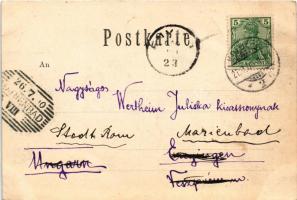 Postkarte
5
An
Nagyságos
Wertheim Juliska kisasszonynak
Stadt Rom Marienbad
Ungarn
Veszprém m.
26.7.
VIII
23